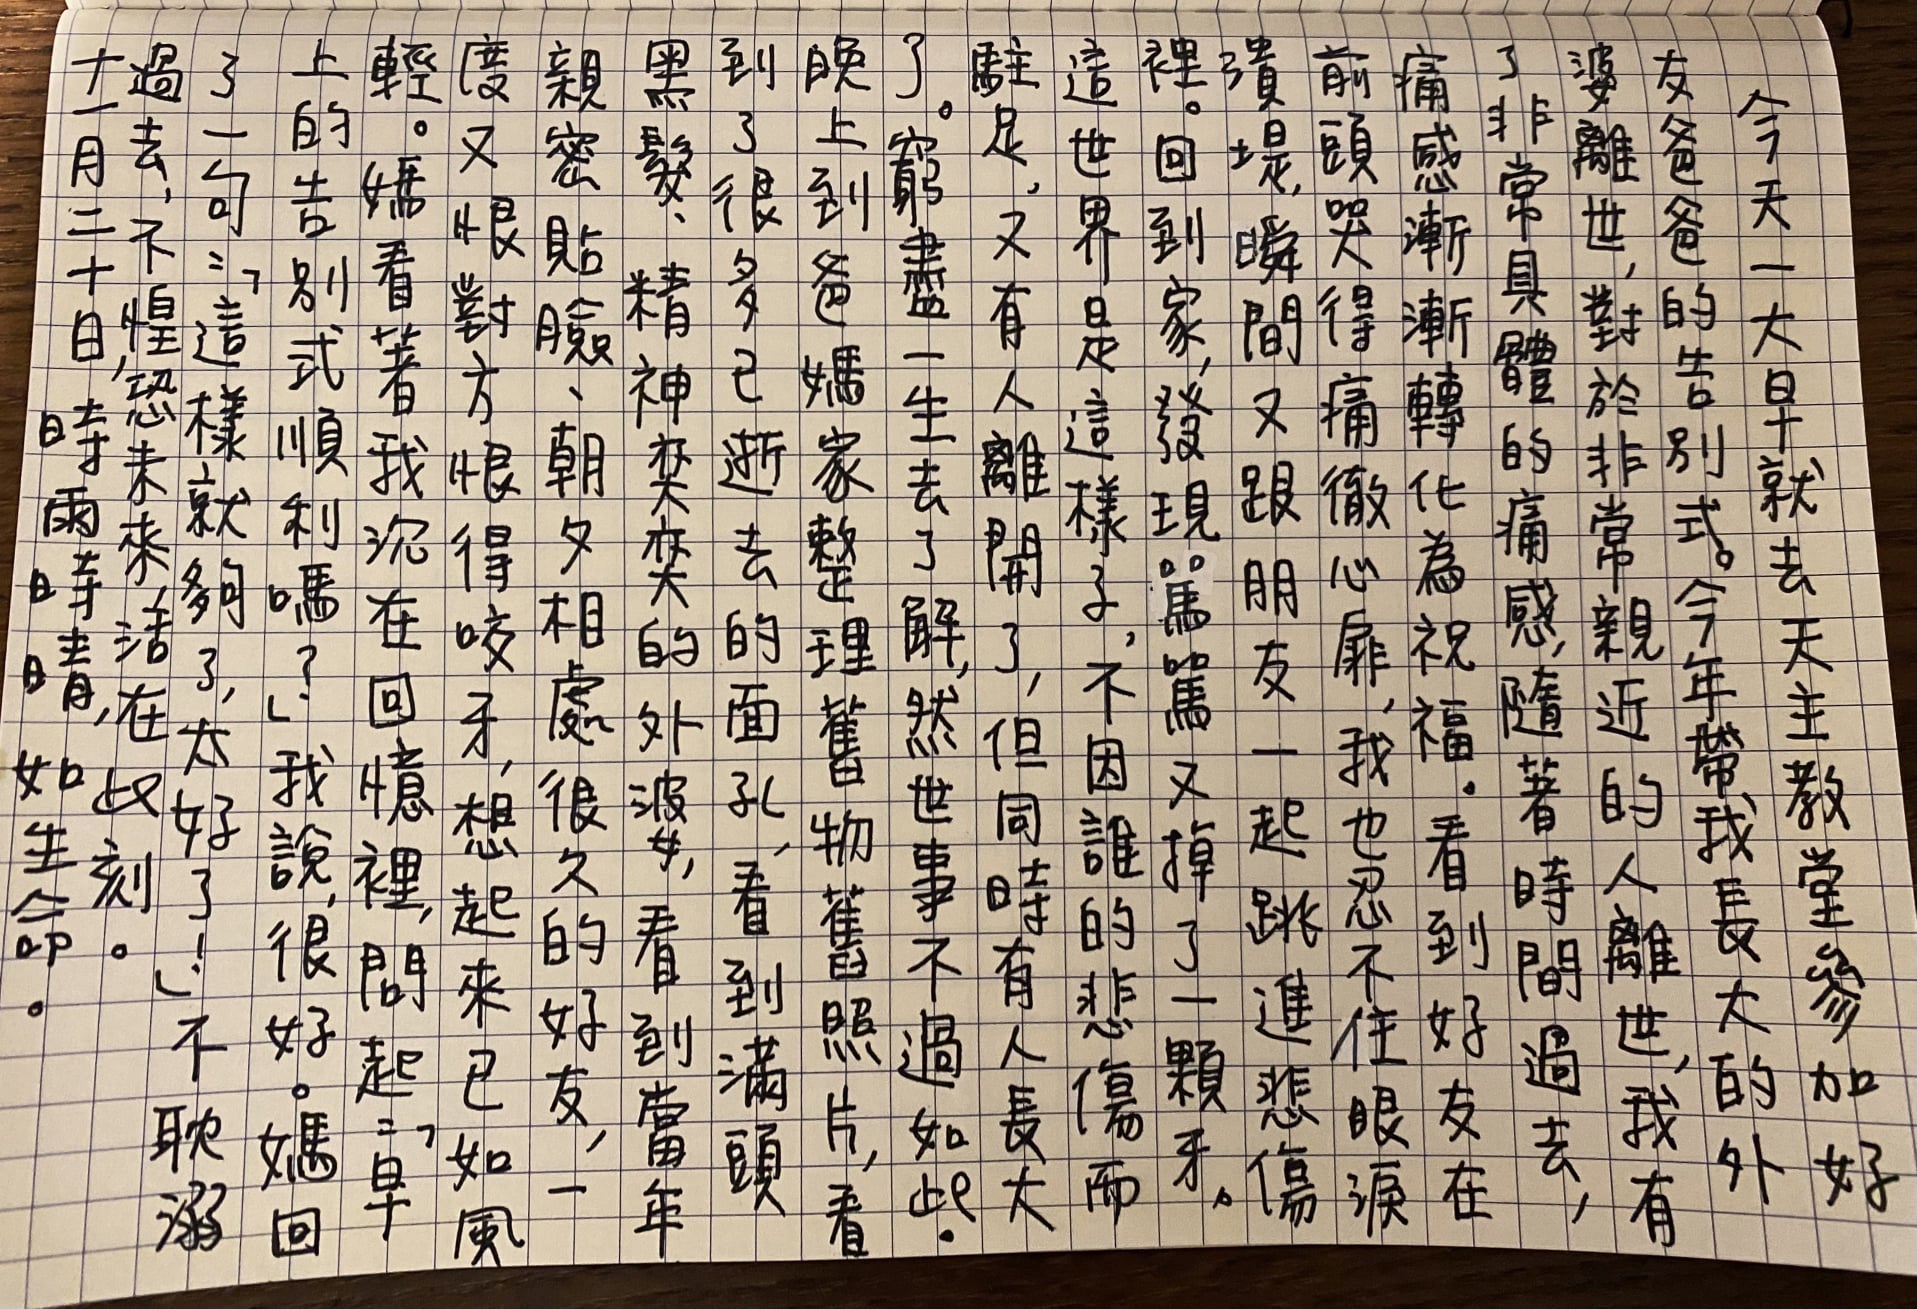 今天一大早就去天主教堂參加好
友爸爸的告別式。今年帶我長大的外
婆離世，對於非常親近的人離世，我有
了非常具體的痛感，隨著時間過去，
痛感漸漸轉化為祝福。看到好友在
前頭哭得痛徹心扉，我也忍不住眼淚
潰堤，瞬間又跟朋友一起跳進悲傷
裡。回到家，發現罵罵又掉了一顆牙。
這世界是這樣子，不因誰的悲傷而
駐足，又有人離開了，但同時有人長大
了。窮盡一生去了解，然世事不過如此。
晚上到爸媽家整理舊物舊照片，看
到了很多已逝去的面孔，看到滿頭
黑髮、精神奕奕的外婆，看到當年
親密貼臉、朝夕相處很久的好友，一
度又恨對方恨得咬牙，想起來已如風
輕。媽看著我沉在回憶裡，問起：「早
上的告別式順利嗎？」我說，很好。媽回
了一句：「這樣就夠了，太好了！」不耽溺
過去，不惶恐未來，活在此刻。
十一月二十日，時雨時晴，如生命。